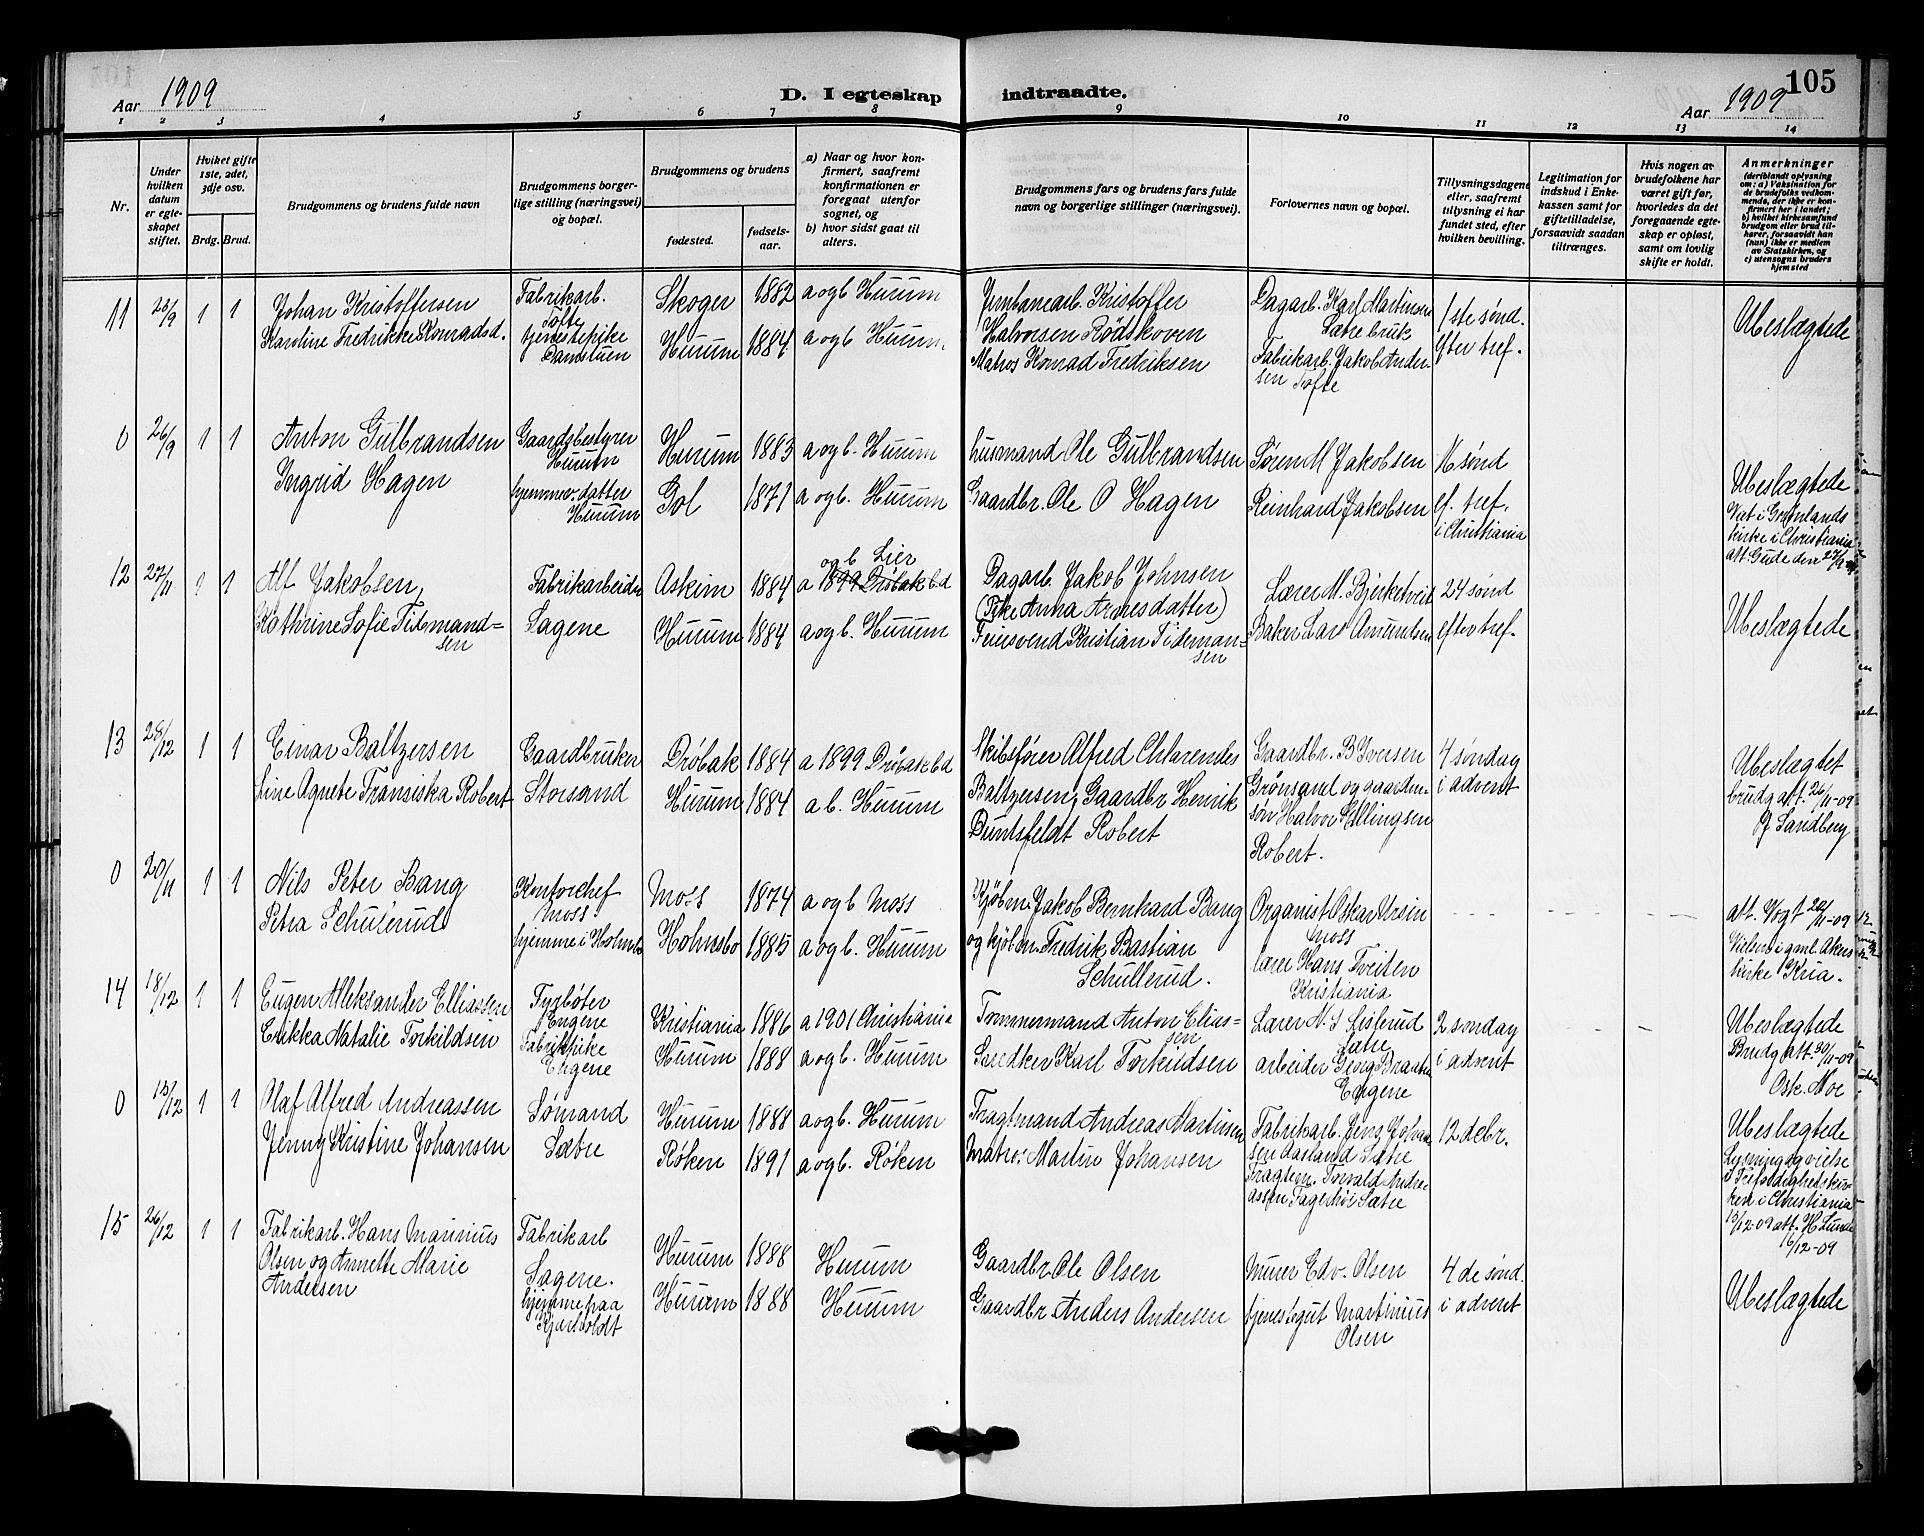 Aar 1909
D. I egteskap indtraadte.
Aar 1909
105
1 2 3 4 5 6 7 8 9 10 11 12 13 14
Nr.
Under hvilken datum er egteskapet stiftet.
Hviket gifte 1ste, 2det, 3dje osv.
Brdg. Brud.
Brudgommens og brudens fulde navn
Brudgommens borgerlige stilling (næringsvei) og bopæl.
Brudgommens og brudens
fødested.
fødselsaar.
a) Naar og hvor konfirmert, saafremt konfirmationen er foregaat utenfor sognet, og
b) hvor sidst gaat til alters.
Brudgommens fars og brudens fars fulde navn og borgerlige stillinger (næringsvei).
Forlovernes navn og bopæl.
Tillysningsdagene eller, saafremt tillysning ei har fundet sted, efter hvilken bevilling.
Legitimation for indskud i Enkekassen samt for giftetilladelse, forsaavidt saadan tiltrænges.
Hvis nogen av brudefolkene har været gift før, hvorledes da det foregaaende egteskap er opløst, samt om lovlig skifte er holdt.
Anmerkninger (deriblandt oplysning om: a) Vaksination for de brudefolks vedkommende, der ikke er konfirmert her i landet; b) hvilket kirkesamfund brudgom eller brud tilhører, forsaavidt han (hun) ikke er medlem av Statskirken, og c) utensogns bruders hjemsted
11 25/9 1 1 Johan Kristoffersen
Karoline Fredrikke Konradsd.
Fabrikarb. Tofte
tjenestepike Damstuen
Skoger 1882 a og b Hurum
Hurum 1884 a og b Hurum.
Jernbanearb. Kristoffer
Halvorsen Rødskoven
Matros Konrad Fredriksen
Dagarb. Karl Martinsen
Sætre bruk
Fabrikarb. Jakob Andersen Tofte
1ste sønd.
efter tref.
Ubeslægtede
0 26/9 1 1 Anton Gulbrandsen
Ingrid Hagen
Gaardsbestyrer
Hurum
hjemmev. datter
Hurum
Hurum 1883 a og b. Hurum
Gol 1871 a og b. Hurum
husmand Ole Gulbrandsen
Gaardbr. Ole O Hagen
Søren M Jakobsen
Reinhard Jakobsen
16 sønd
ef. tref.
i Christiania
Ubeslægtede
Viet i Grønlands
kirke i Christiania
att. Gude den 27/9 09
12 27/11 1 1 Alf Jakobsen
Kathrine Sofie Tidemandsen
Fabrikarbeider
Sagene
Askim 1884 a 1899 Drøbak b d
og b Lier
Hurum 1884 a og b. Hurum
Dagarb. Jakob Johnsen
(Pike Anna Arnesdatter)
Feiersvend Kristian Tidemansen
Lærer M. Bjerketveit
Baker Lars Amundsen
24 sønd
efter tref.
Ubeslægtede
13 28/12 1 1 Einar Baltzersen
Line Agnete Fransiska Robert
Gaardbruker
Storsand
Drøbak 1884 a 1899 Drøbak b d
Hurum 1884 a b. Hurum
Skibsfører Alfred Chlarendes
Baltzersen, Gaardbr Henrik
Duntsfeldt Robert
Gaardbr. B Iversen
Grønsand og gaardmsøn Halvor Ellingsen
Robert.
4 søndag
i advent
Ubeslægtet
brudg att. 26/11-09
Sandberg
0 20/11 1 1 Nils Peter Bang
Petra Schulerud
Kontorchef
Moss
hjemme i Holmsbo
Moss 1874 a og b Moss
Holmsbo 1885 a og b. Hurum
Kjøbm. Jakob Bernhard Bang
og kjøbm. Fredrik Bastian
Schullerud.
Organist Oskar Ursin
Moss
lærer Hans Tveiten
Kristiania
att. Vogt 20/11-09
Vielsen i gml. Akers
kirke Kria.
14 18/12 1 1 Eugen Alleksander Elliassen
Erikka Natalie Torkildsen
Fyrbøter
Engene
Fabrikpike
Engene
Kristiania 1886 a 1901 Christiania
Hurum 1888 a og b. Hurum
Tømmermand Anton Eliassen
Snedker Karl Torkildsen
Lærer N. S Lislerud
Sætre
arbeider Georg Braaten
Engene
2 søndag
i advent
Ubeslægtede
Brudg att. 30/11-09
Osk. Moe
0 15/12 1 1 Olaf Alfred Andreassen
Jenny Kristine Johansen
Sømand
Sætre
Hurum 1888 a og b. Hurum
Røken 1891 a og b. Røken
Fragtmand Andreas Martinsen
Matros Martin Johansen
Fabrikarb. Jens Johansen Sætre
Fragtem. Torvald Andreassen Fagerli Sætre
12 debr.
Ubeslægtede
Lysning og vielse
i Trefoldighedskirken i Christiania
15/12 09 att. H Lunde
16/12-09
15 26/12 1 1 Fabrikarb. Hans Marinius
Olsen og Annette Marie
Andersen
Fabrikarb
Sagene.
hjemme paa
Kjærholdt
Hurum 1888 Hurum
Hurum 1888 Hurum
Gaardbr. Ole Olsen
Gaardbr Anders Andersen
Murer Edv. Olsen
tjenestegut Martinius
Olsen
4 de sønd.
i advent
Ubeslægtede